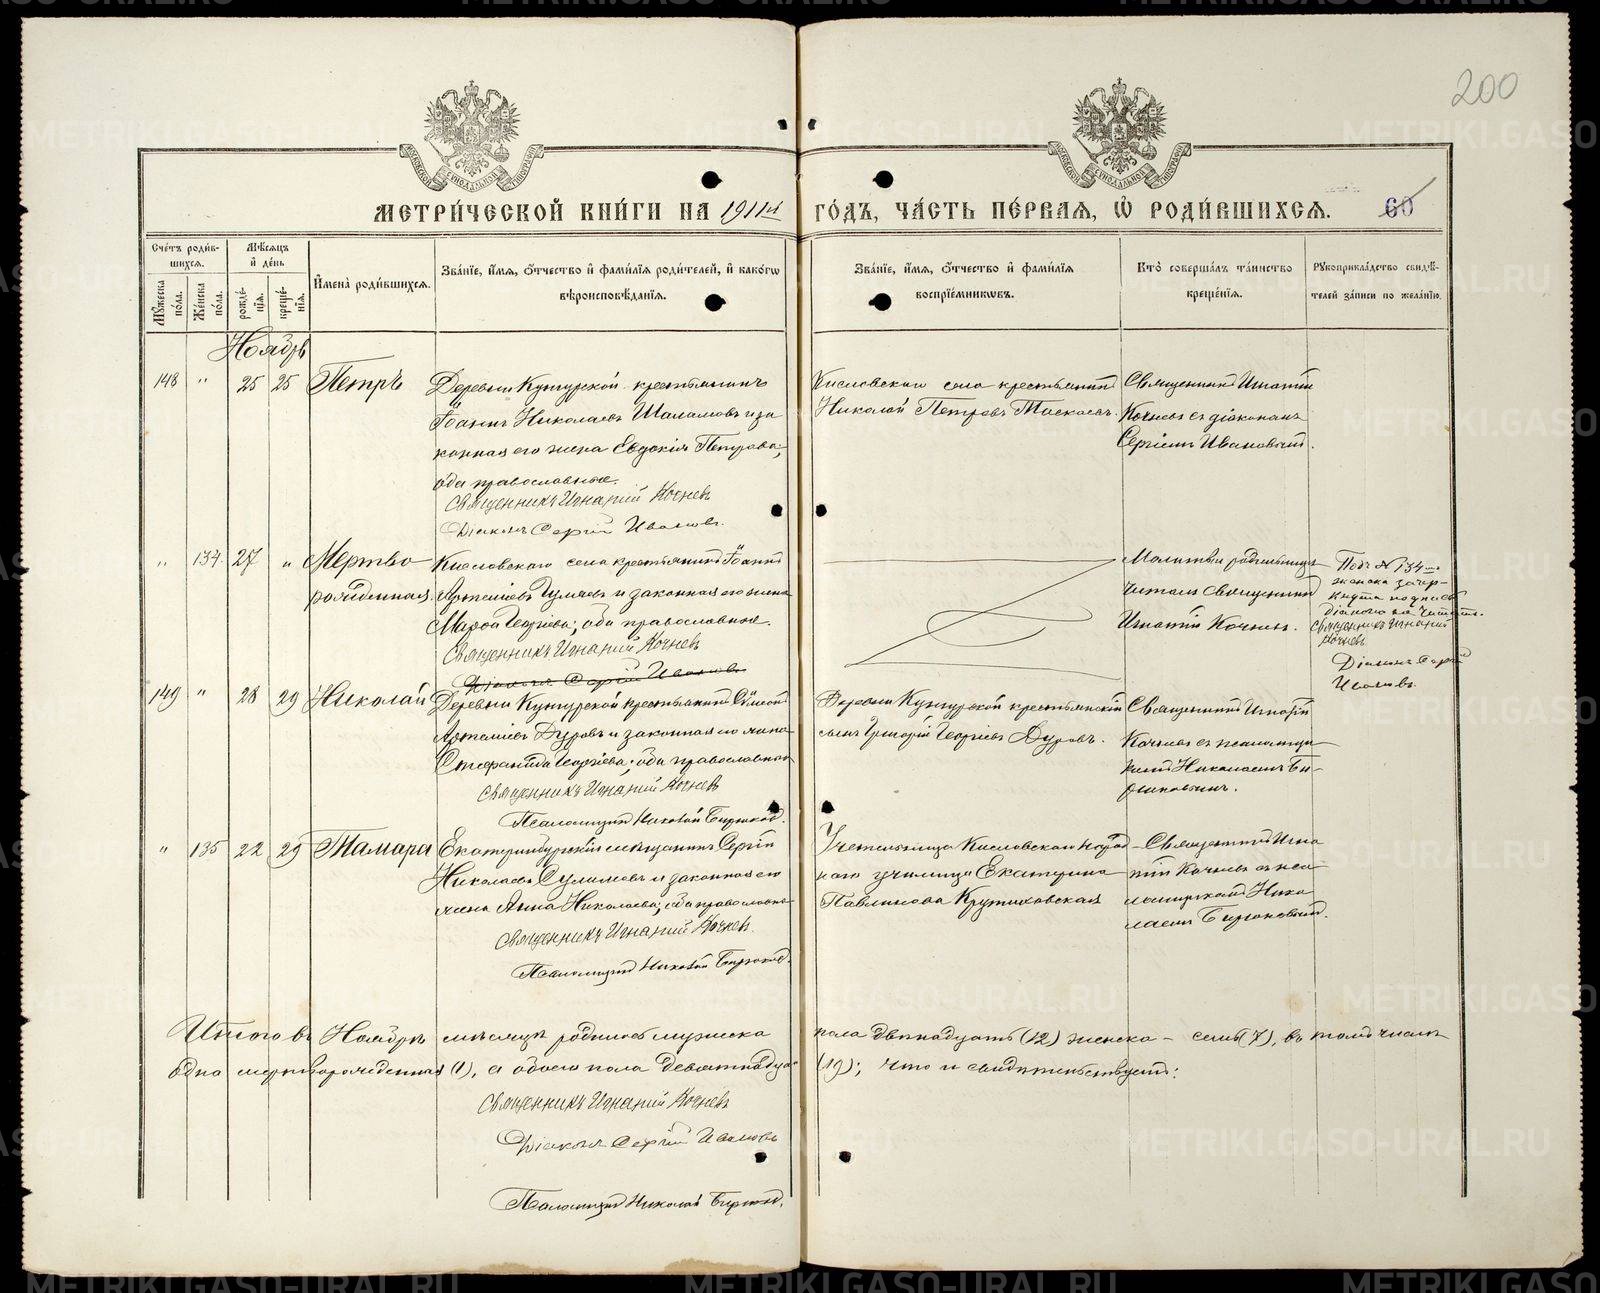 200
МЕТРИ́ЧЕСКОЙ КНИ́ГИ НА 1911й ГО́ДЪ, ЧА́СТЬ ПЕ́РВАЯ, Ѡ҆ РОДИ́ВШИХСЯ.
60
Сче́тъ роди́в-
шихся.
Мѣ́сяцъ
и҆ де́нь
Мꙋ́жеска по́ла.
Же́нска по́ла.
рожде́нїя.
креще́нїя.
И҆мена̀ роди́вшихся.
Зва́нїе, и҆́мя, ѻ҆́тчество и҆ фами́лїя роди́телей, и҆ како́гѡ
вѣроисповѣ́данїя.
Зва́нїе, и҆́мя, ѻ҆́тчество и҆ фами́лїя
воспрїе́мникѡвъ.
Кто̀ соверша́лъ та́инство
креще́нїя.
Рꙋкоприкла́дство свидѣ́-
телей за́писи по жела́нїю.
Ноябрь
148 " 25 25 Петръ
Деревни Кунгурской крестьянинъ
Іоаннъ Николаевъ Шаламовъ и за
конная его жена Евдокія Петрова;
оба православные.
Священникъ Игнатій Кочневъ
Діаконъ Сергій Ивановъ.
Кисловскаго села крестьянинъ
Николай Петровъ Таскаевъ.
Священникъ Игнатій
Кочневъ съ діакономъ
Сергіемъ Ивановымъ.
" 134. 27 " Мертво
рожденная.
Кисловскаго села крестьянинъ Іоаннъ
Артемьевъ и законная его жена
Марѳа Георгіева; оба православные.
Священникъ Игнатій Кочневъ
Діаконъ Сергій Ивановъ
Молитвы родильницѣ
читалъ священникъ
Игнатій Кочневъ.
Подъ № 134мъ
женска зачер-
кнута подпись
діакона не читать.
Священникъ Игнатій
Кочневъ
Діаконъ Сергій
Ивановъ.
149 " 28 29 Николай
Деревни Кунгурской крестьянинъ Симеонъ
Артемьевъ Дуровъ и законная его жена
Стефанида Георгіева; оба православные
Священникъ Игнатій Кочневъ
Псаломщикъ Николай Бирюковъ.
Деревни Кунгурской крестьянскій
сынъ Григорій Георгіевъ Дуровъ.
Священникъ Игнатій
Кочневъ съ псаломщи
комъ Николаемъ Би-
рюковымъ.
" 135 22 29 Тамара
Екатеринбургскій мѣщанинъ Сергій
Николаевъ Сулимовъ и законная его
жена Анна Николаева; оба православные
Священникъ Игнатій Кочневъ.
Псаломщикъ Николай Бирюковъ.
Учительница Кисловскаго народ-
наго училища Екатерина
Павлинова Крутиховская
Священникъ Игна
тій Кочневъ съ пса
ломщикомъ Нико
лаемъ Бирюковымъ.
Итого въ Ноябрѣ мѣсяцѣ родилось мужеска пола двѣнадцать (12) женска - семь (7), въ томъ числѣ
одна мертворожденная (1), а обоего пола девятнадца (19); что и свидѣтельствуемъ:
Священникъ Игнатій Кочневъ
Діаконъ Сергій Ивановъ
Псаломщикъ Николай Бирюковъ.
METRIKI.GASO-URAL.RU